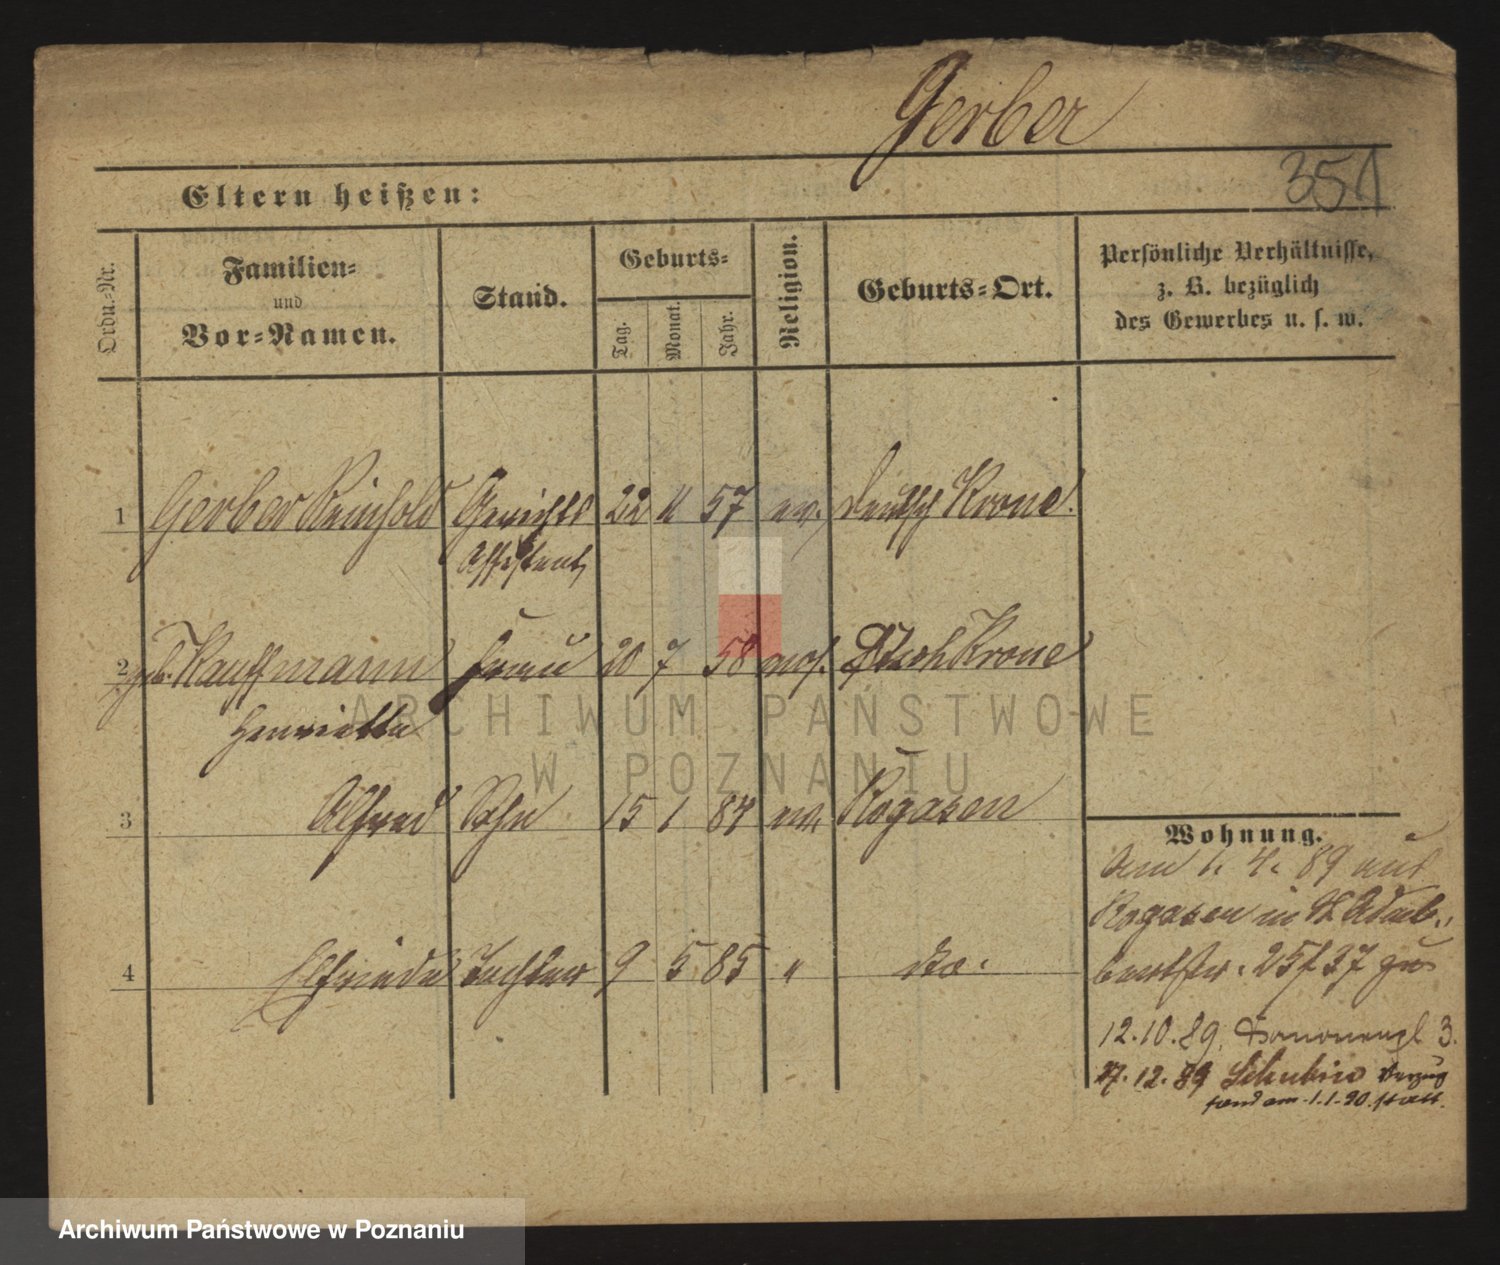 Gerber
351
Eltern heißen:
Ordn.-Nr.
Familien-
und
Vor-Namen.
Stand.
Geburts-
Tag.
Monat.
Jahr.
Religion.
Geburts-Ort.
Persönliche Verhältnisse,
z. B. bezüglich
des Gewerbes u. s. w.
1 Gerber Reinhold Gerichts 22 11 57 ev. Deutsch Krone.
Assistent
2 geb. Kauffmann Frau 20 7 58 mos. Dtsch Krone
Henriette
3 Alfred Sohn 15 1 84 ev. Rogasen
4 Elfriede Tochter 9 5 85 " do.
Wohnung.
Am 1. 4. 89 aus
Rogasen in St Adalb.
bertstr. 25/27 zu
12.10.89. 3.
27.12.89 Schubin Verzug
fand am 1.1.90. statt.
ARCHIWUM PAŃSTWOWE
W POZNANIU
Archiwum Państwowe w Poznaniu